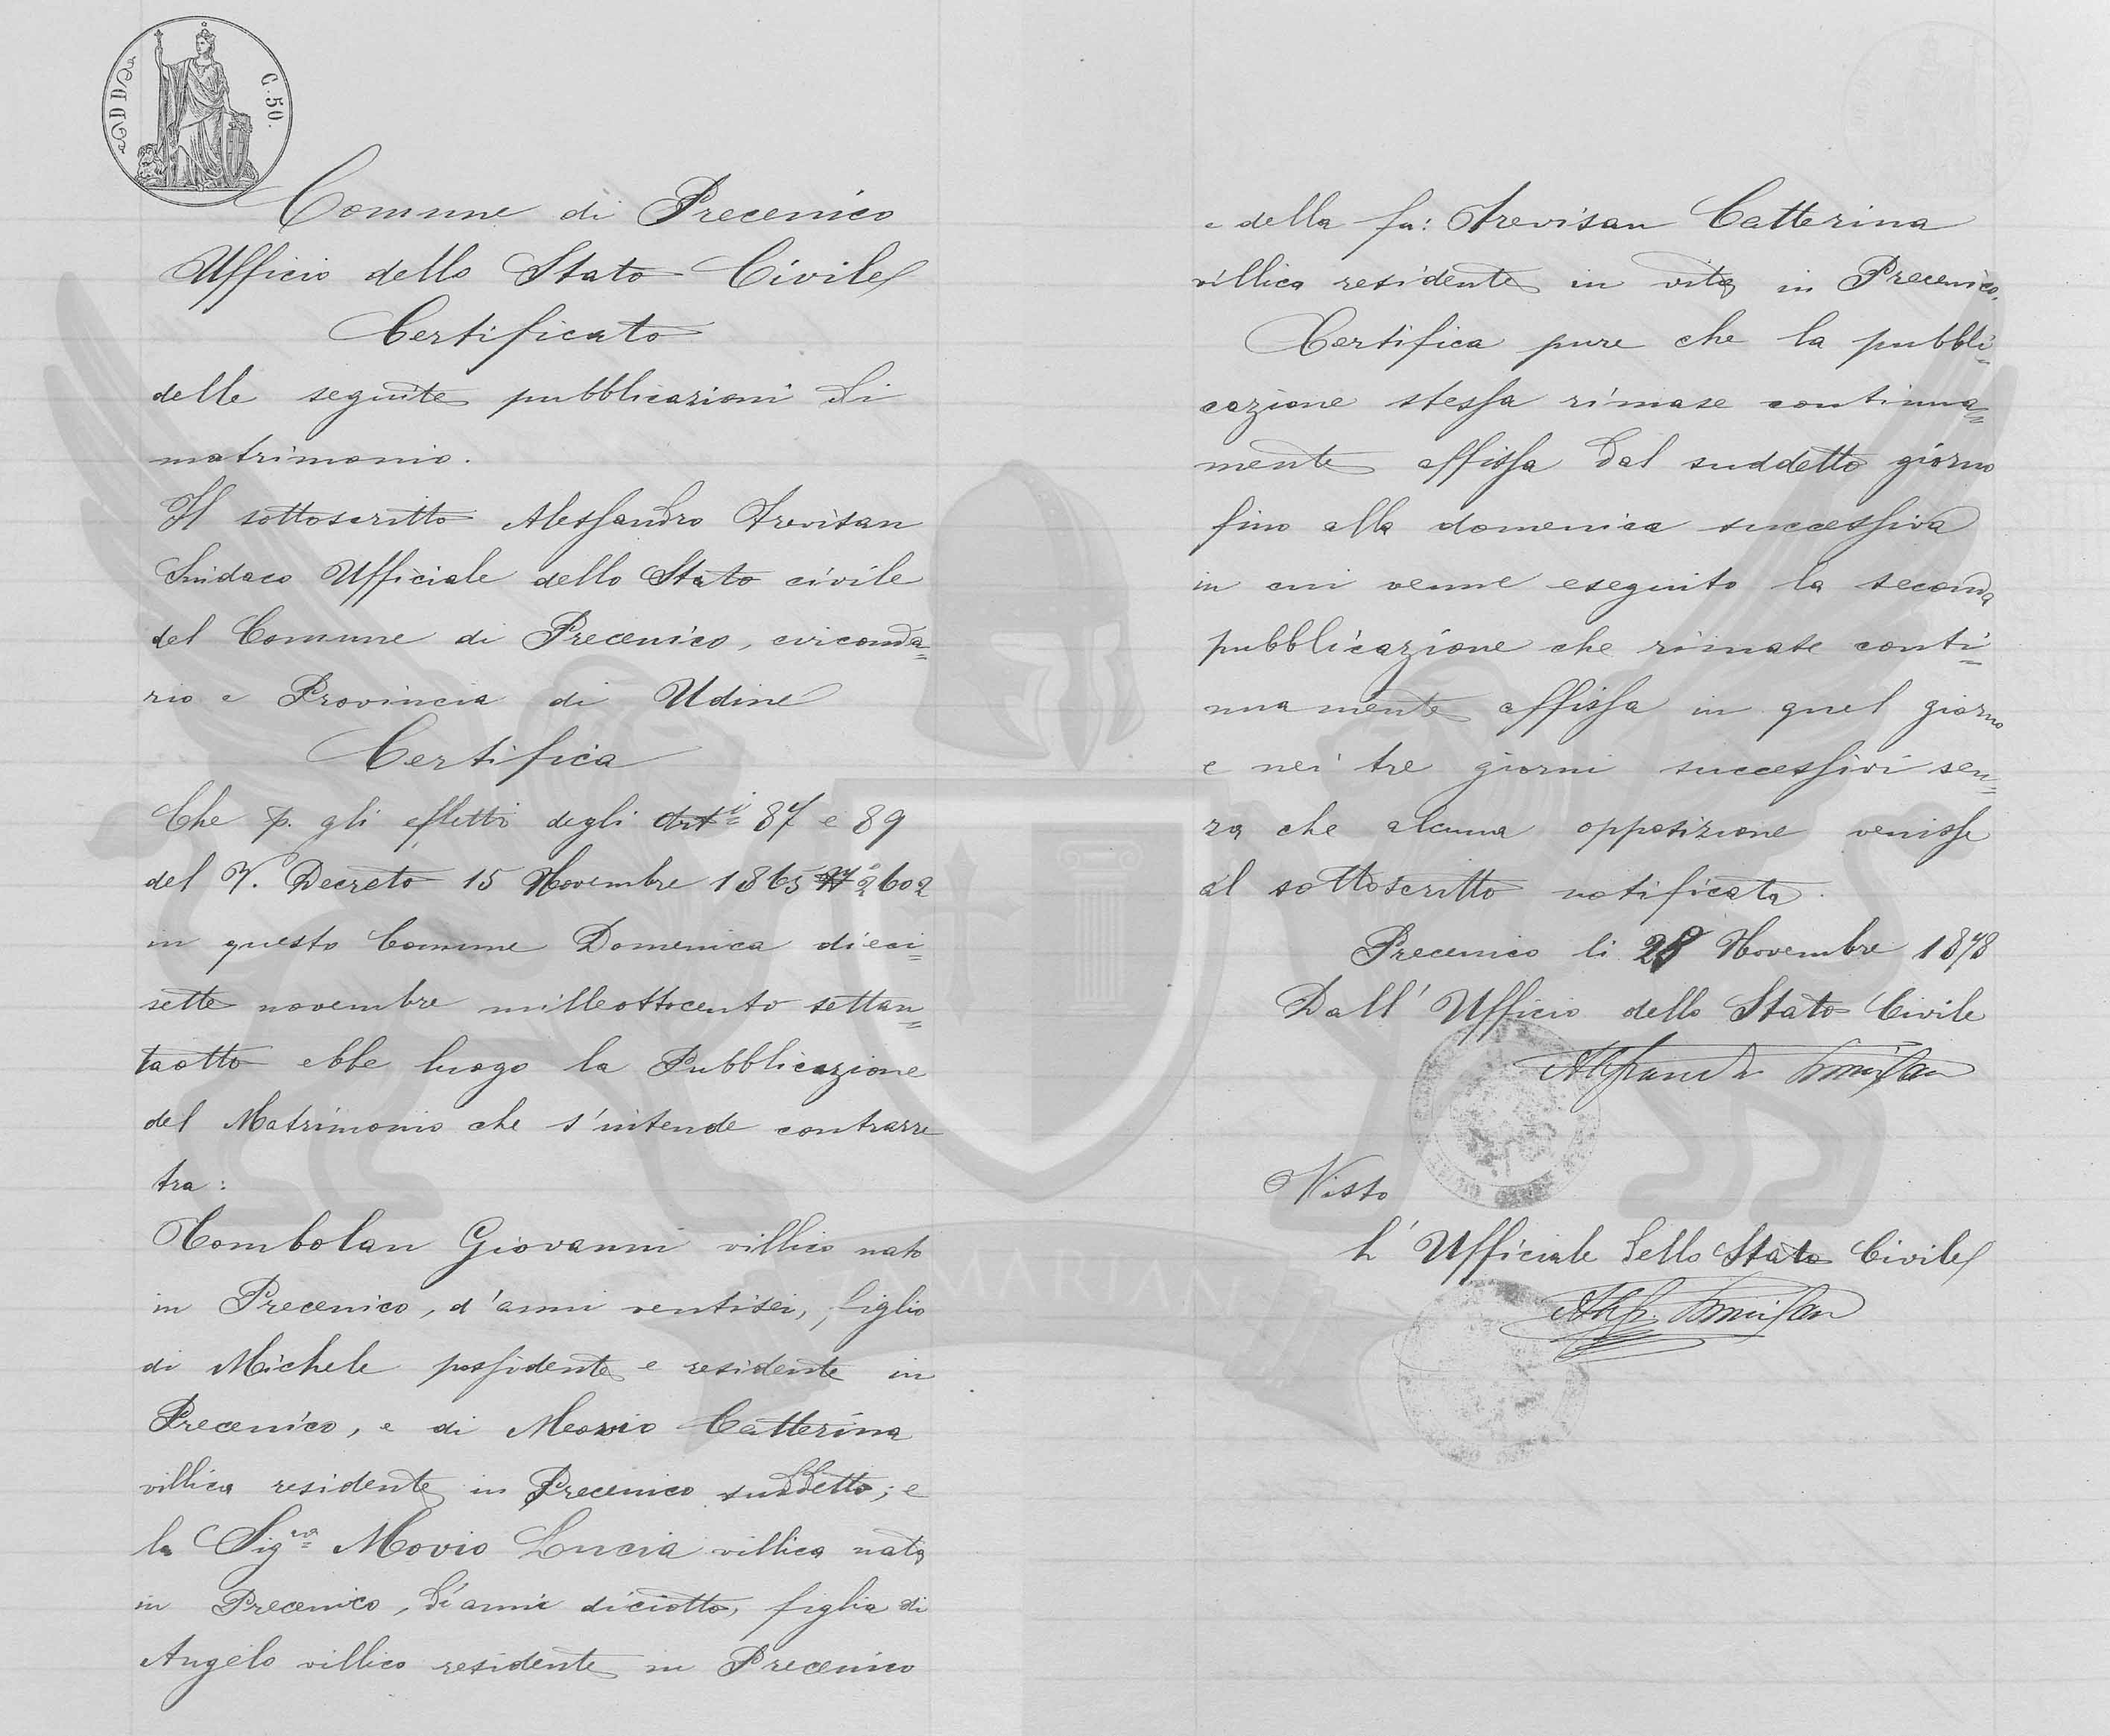 C. 50.
Comune di Precenico
Ufficio dello Stato Civile
Certificato
delle seguite pubblicazioni di
matrimonio.
Il sottoscritto Alessandro Trevisan
Sindaco Ufficiale dello Stato civile
del Comune di Precenico, circonda=
rio e Provincia di Udine
Certifica
Che p. gli effetti degli Arti 87 e 89
del R. Decreto 15 Novembre 1865 No 2602
in questo Comune Domenica dieci=
sette novembre milleottocento settan=
taotto ebbe luogo la Pubblicazione
del Matrimonio che s'intende contrarre
tra:
Tombolan Giovanni villico nato
in Precenico, d'anni ventisei, figlio
di Michele possidente e residente in
Precenico, e di Catterina
villica residente in Precenico suddetto; e
la Sigra Movio Lucia villica nata
in Precenico, d'anni diciotto, figlia di
Angelo villico residente in Precenico
e della fu: Trevisan Catterina
villica residente in vita in Precenico.
Certifica pure che la pubbli=
cazione stessa rimase continua=
mente affissa dal suddetto giorno
fino alla domenica successiva
in cui venne eseguito la seconda
pubblicazione che rimase conti=
nuamente affissa in quel giorno
e nei tre giorni successivi sen=
za che alcuna opposizione venisse
al sottoscritto notificata.
Precenico li 28 Novembre 1878
Dall' Ufficio dello Stato Civile
Alessandro Trevisan
Visto
L' Ufficiale dello Stato Civile
Aless. Trevisan